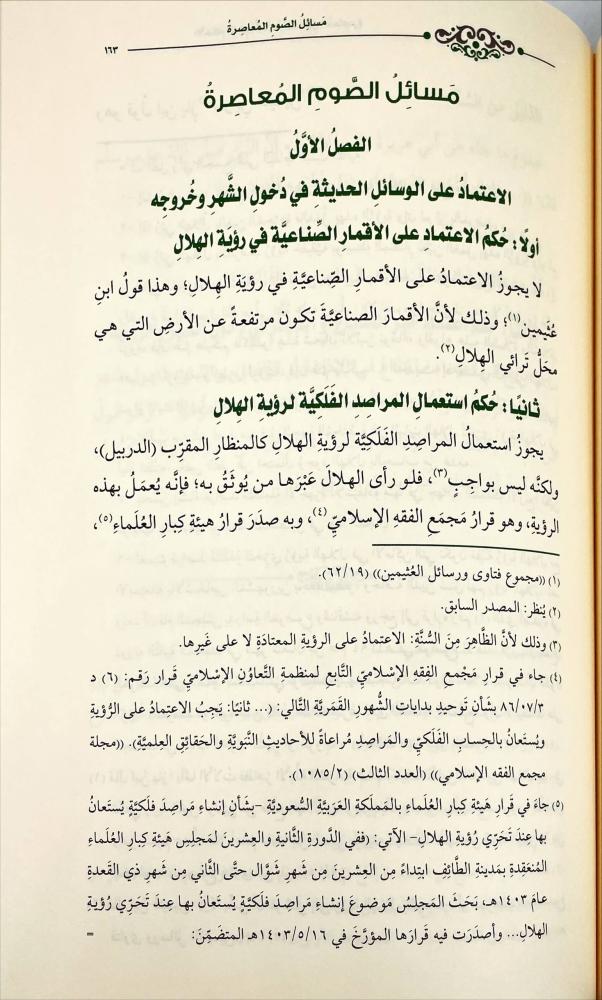 مَسائِلُ الصَّومِ المُعاصِرةُ
١٦٣
مَسائِلُ الصَّومِ المُعاصِرةُ
الفصلُ الأوَّلُ
الاعتمادُ على الوسائلِ الحديثةِ في دُخولِ الشَّهرِ وخُروجِه
أولًا: حُكمُ الاعتمادِ على الأقمارِ الصِّناعيَّةِ في رؤيةِ الهلالِ
لا يجوزُ الاعتمادُ على الأقمارِ الصِّناعيَّةِ في رؤيةِ الهِلالِ؛ وهذا قولُ ابنِ
عُثَيمين(١)؛ وذلك لأنَّ الأقمارَ الصناعيةَ تكون مرتفعةً عن الأرضِ التي هي
محَلُّ تَرائي الهِلالِ(٢).
ثانيًا: حُكمُ استعمالِ المراصِدِ الفَلَكيَّة لرؤيةِ الهلالِ
يجوزُ استعمالُ المراصِدِ الفَلَكيَّةِ لرؤيةِ الهلالِ كالمنظارِ المقرِّبِ (الدربيل)،
ولكنَّه ليس بواجِبٍ(٣)، فلو رأى الهلالَ عَبْرَها من يُوثَقُ به؛ فإنَّه يُعمَلُ بهذه
الرؤيةِ، وهو قرارُ مَجمَعِ الفقهِ الإسلاميِّ(٤)، وبه صدَرَ قرارُ هيئةِ كِبارِ العُلَماءِ(٥)،
(١) ((مجموع فتاوى ورسائل العُثيمين)) (٦٢/١٩).
(٢) يُنظر: المصدر السابق.
(٣) وذلك لأنَّ الظَّاهِرَ مِنَ السُّنَّة: الاعتمادُ على الرؤيةِ المعتادَةِ لا على غَيرِها.
(٤) جاء في قرارِ مَجْمعِ الفِقهِ الإسلاميِّ التَّابعِ لمنظمةِ التَّعاوُنِ الإسلاميِّ قَرار رَقم: (٦) د
٨٦/٠٧/٣ بشأنِ تَوحيدِ بداياتِ الشُّهورِ القَمَريَّةِ التَّالي: (... ثانيًا: يَجِبُ الاعتِمادُ على الرُّؤيةِ
ويُستَعانُ بالحِسابِ الفَلَكيِّ والمَراصِدِ مُراعاةً للأحاديثِ النَّبَويَّةِ والحَقائِقِ العِلميَّةِ). ((مجلة
مجمع الفقه الإسلامي)) (العدد الثالث) (١٠٨٥/٢).
(٥) جاءَ في قَرارِ هَيئةِ كِبارِ العُلَماءِ بالمَملَكةِ العَرَبيَّةِ السُّعوديَّةِ -بشَأنِ إنشاءِ مَراصِدَ فلَكيَّةٍ يُستَعانُ
بها عِندَ تَحَرِّي رُؤيةِ الهِلالِ- الآتي: (ففي الدَّورةِ الثَّانيةِ والعِشرينَ لمَجلِسِ هَيئةِ كِبارِ العُلَماءِ
المُنعَقِدةِ بمَدينةِ الطَّائِفِ ابتِداءً مِنَ العِشرينَ مِن شَهرِ شَوَّال حتَّى الثَّاني مِن شَهرِ ذي القَعدةِ
عامَ ١٤٠٣هـ، بَحَثَ المَجلِسُ مَوضوعَ إنشاءِ مَراصِدَ فلَكيَّةٍ يُستَعانُ بها عِندَ تَحَرِّي رُؤيةِ
الهِلالِ... وأصدَرَت فيه قَرارَها المؤرَّخَ في ١٤٠٣/٥/١٦هـ المتضَمِّنَ: =